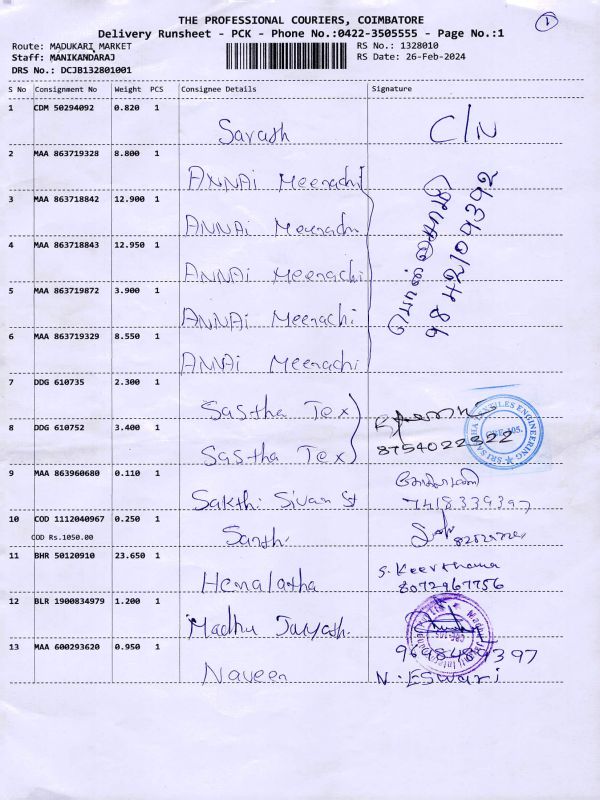 1
THE PROFESSIONAL COURIERS, COIMBATORE
Delivery Runsheet - PCK - Phone No.:0422-3505555 - Page No.:1
Route: MADUKARI MARKET
RS No.: 1328010
Staff: MANIKANDARAJ
RS Date: 26-Feb-2024
DRS No.: DCJB132801001
S No Consignment No Weight PCS Consignee Details Signature
1 CDM 50294092 0.820 1
Savash C/N
2 MAA 863719328 8.800 1
ANNAi Meenachi
3 MAA 863718842 12.900 1
ANNAi Meenachi
4 MAA 863718843 12.950 1
ANNAi Meenachi
9842109392
5 MAA 863719872 3.900 1
ANNAi Meenachi
6 MAA 863719329 8.550 1
ANNAi Meenachi
7 DDG 610735 2.300 1
Sastha Tex
8 DDG 610752 3.400 1
8754022322
SRI SASTHA TEXTILES ENGINEERING
Sastha Tex
9 MAA 863960680 0.110 1
Sakthi Sivan St 7418339397
10 COD 1112040967 0.250 1
COD Rs.1050.00
Santhi
11 BHR 50120910 23.650 1
S. Keerthana
Hemalatha 8072967756
12 BLR 1900834979 1.200 1
Madhu Jayash
13 MAA 600293620 0.950 1
Naveen N. ESwari